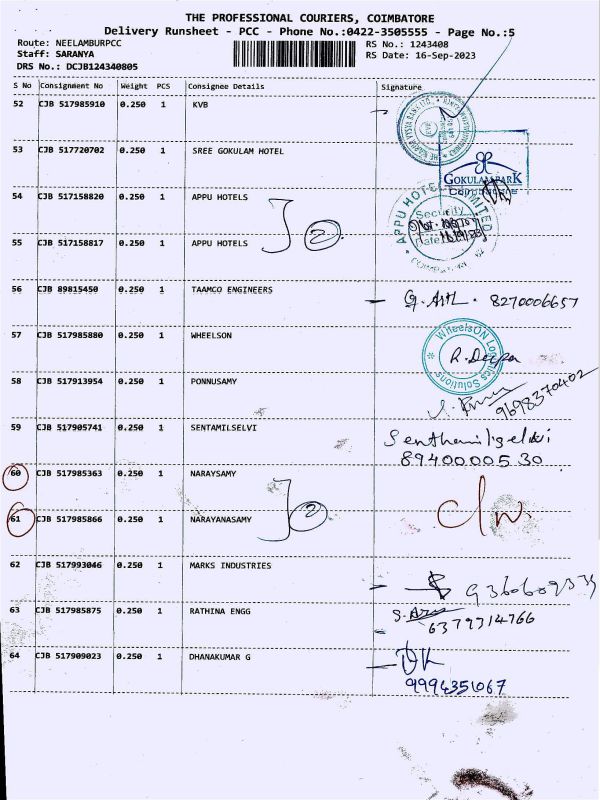 THE PROFESSIONAL COURIERS, COIMBATORE
Delivery Runsheet - PCC - Phone No.:0422-3505555 - Page No.:5
Route: NEELAMBURPCC RS No.: 1243408
Staff: SARANYA RS Date: 16-Sep-2023
DRS No.: DCJB124340805
S No Consignment No Weight PCS Consignee Details Signature
52 CJB 517985910 0.250 1 KVB
53 CJB 517720702 0.250 1 SREE GOKULAM HOTEL
GOKULAM PARK
Coimbatore
54 CJB 517158820 0.250 1 APPU HOTELS
2
APPU HOTELS LIMITED
Security
Date
55 CJB 517158817 0.250 1 APPU HOTELS
56 CJB 89815450 0.250 1 TAAMCO ENGINEERS
8270006657
57 CJB 517985880 0.250 1 WHEELSON
WheelsON Logistics Solutions
R. Deepa
58 CJB 517913954 0.250 1 PONNUSAMY
9698370402
59 CJB 517905741 0.250 1 SENTAMILSELVI
8940000530
60 CJB 517985363 0.250 1 NARAYSAMY
2
61 CJB 517985866 0.250 1 NARAYANASAMY
62 CJB 517993046 0.250 1 MARKS INDUSTRIES
63 CJB 517985875 0.250 1 RATHINA ENGG
64 CJB 517909023 0.250 1 DHANAKUMAR G
DK